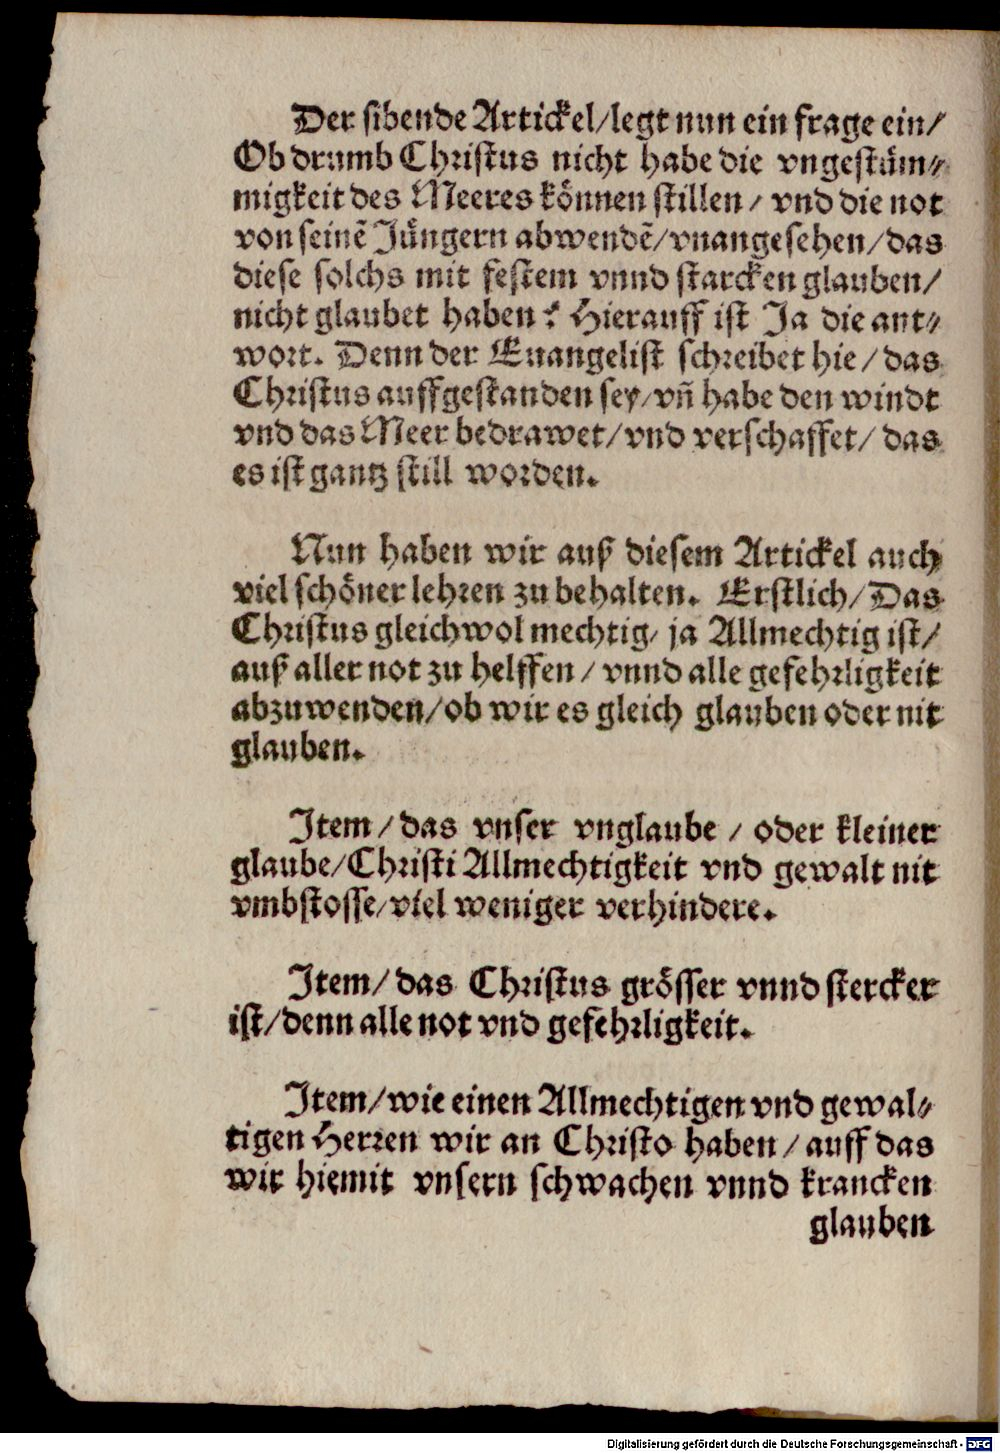 Der sibende Artickel/legt nun ein frage ein/
Ob drumb Christus nicht habe die vngestüm⸗
migkeit des Meeres können stillen/ vnd die not
von seinẽ Jüngern abwendẽ/vnangesehen/das
diese solchs mit festem vnnd starcken glauben/
nicht glaubet haben? Hierauff ist Ja die ant⸗
wort. Denn der Euangelist schreibet hie/das
Christus auffgestanden sey/vñ habe den windt
vnd das Meer bedrawet/vnd verschaffet/ das
es ist gantz still worden.
Nun haben wir auß diesem Artickel auch
viel schöner lehren zu behalten. Erstlich/Das
Christus gleichwol mechtig/ ja Allmechtig ist/
auß aller not zu helffen/ vnnd alle gefehrligkeit
abzuwenden/ob wir es gleich glauben oder nit
glauben.
Item/das vnser vnglaube/ oder kleiner
glaube/Christi Allmechtigkeit vnd gewalt nit
vmbstosse/viel weniger verhindere.
Item/das Christus grösser vnnd stercker
ist/denn alle not vnd gefehrligkeit.
Item/wie einen Allmechtigen vnd gewal⸗
tigen Herren wir an Christo haben/ auff das
wir hiemit vnsern schwachen vnnd krancken
glauben
Digitalisierung gefördert durch die Deutsche Forschungsgemeinschaft - DFG